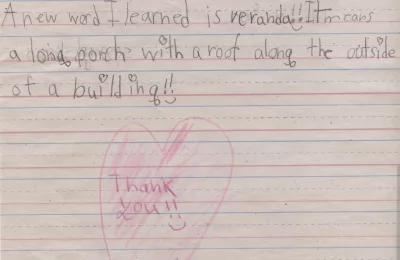 A new word I learned is veranda!! It means
a long porch with a roof along the outside
of a building!!
Thank
you!!